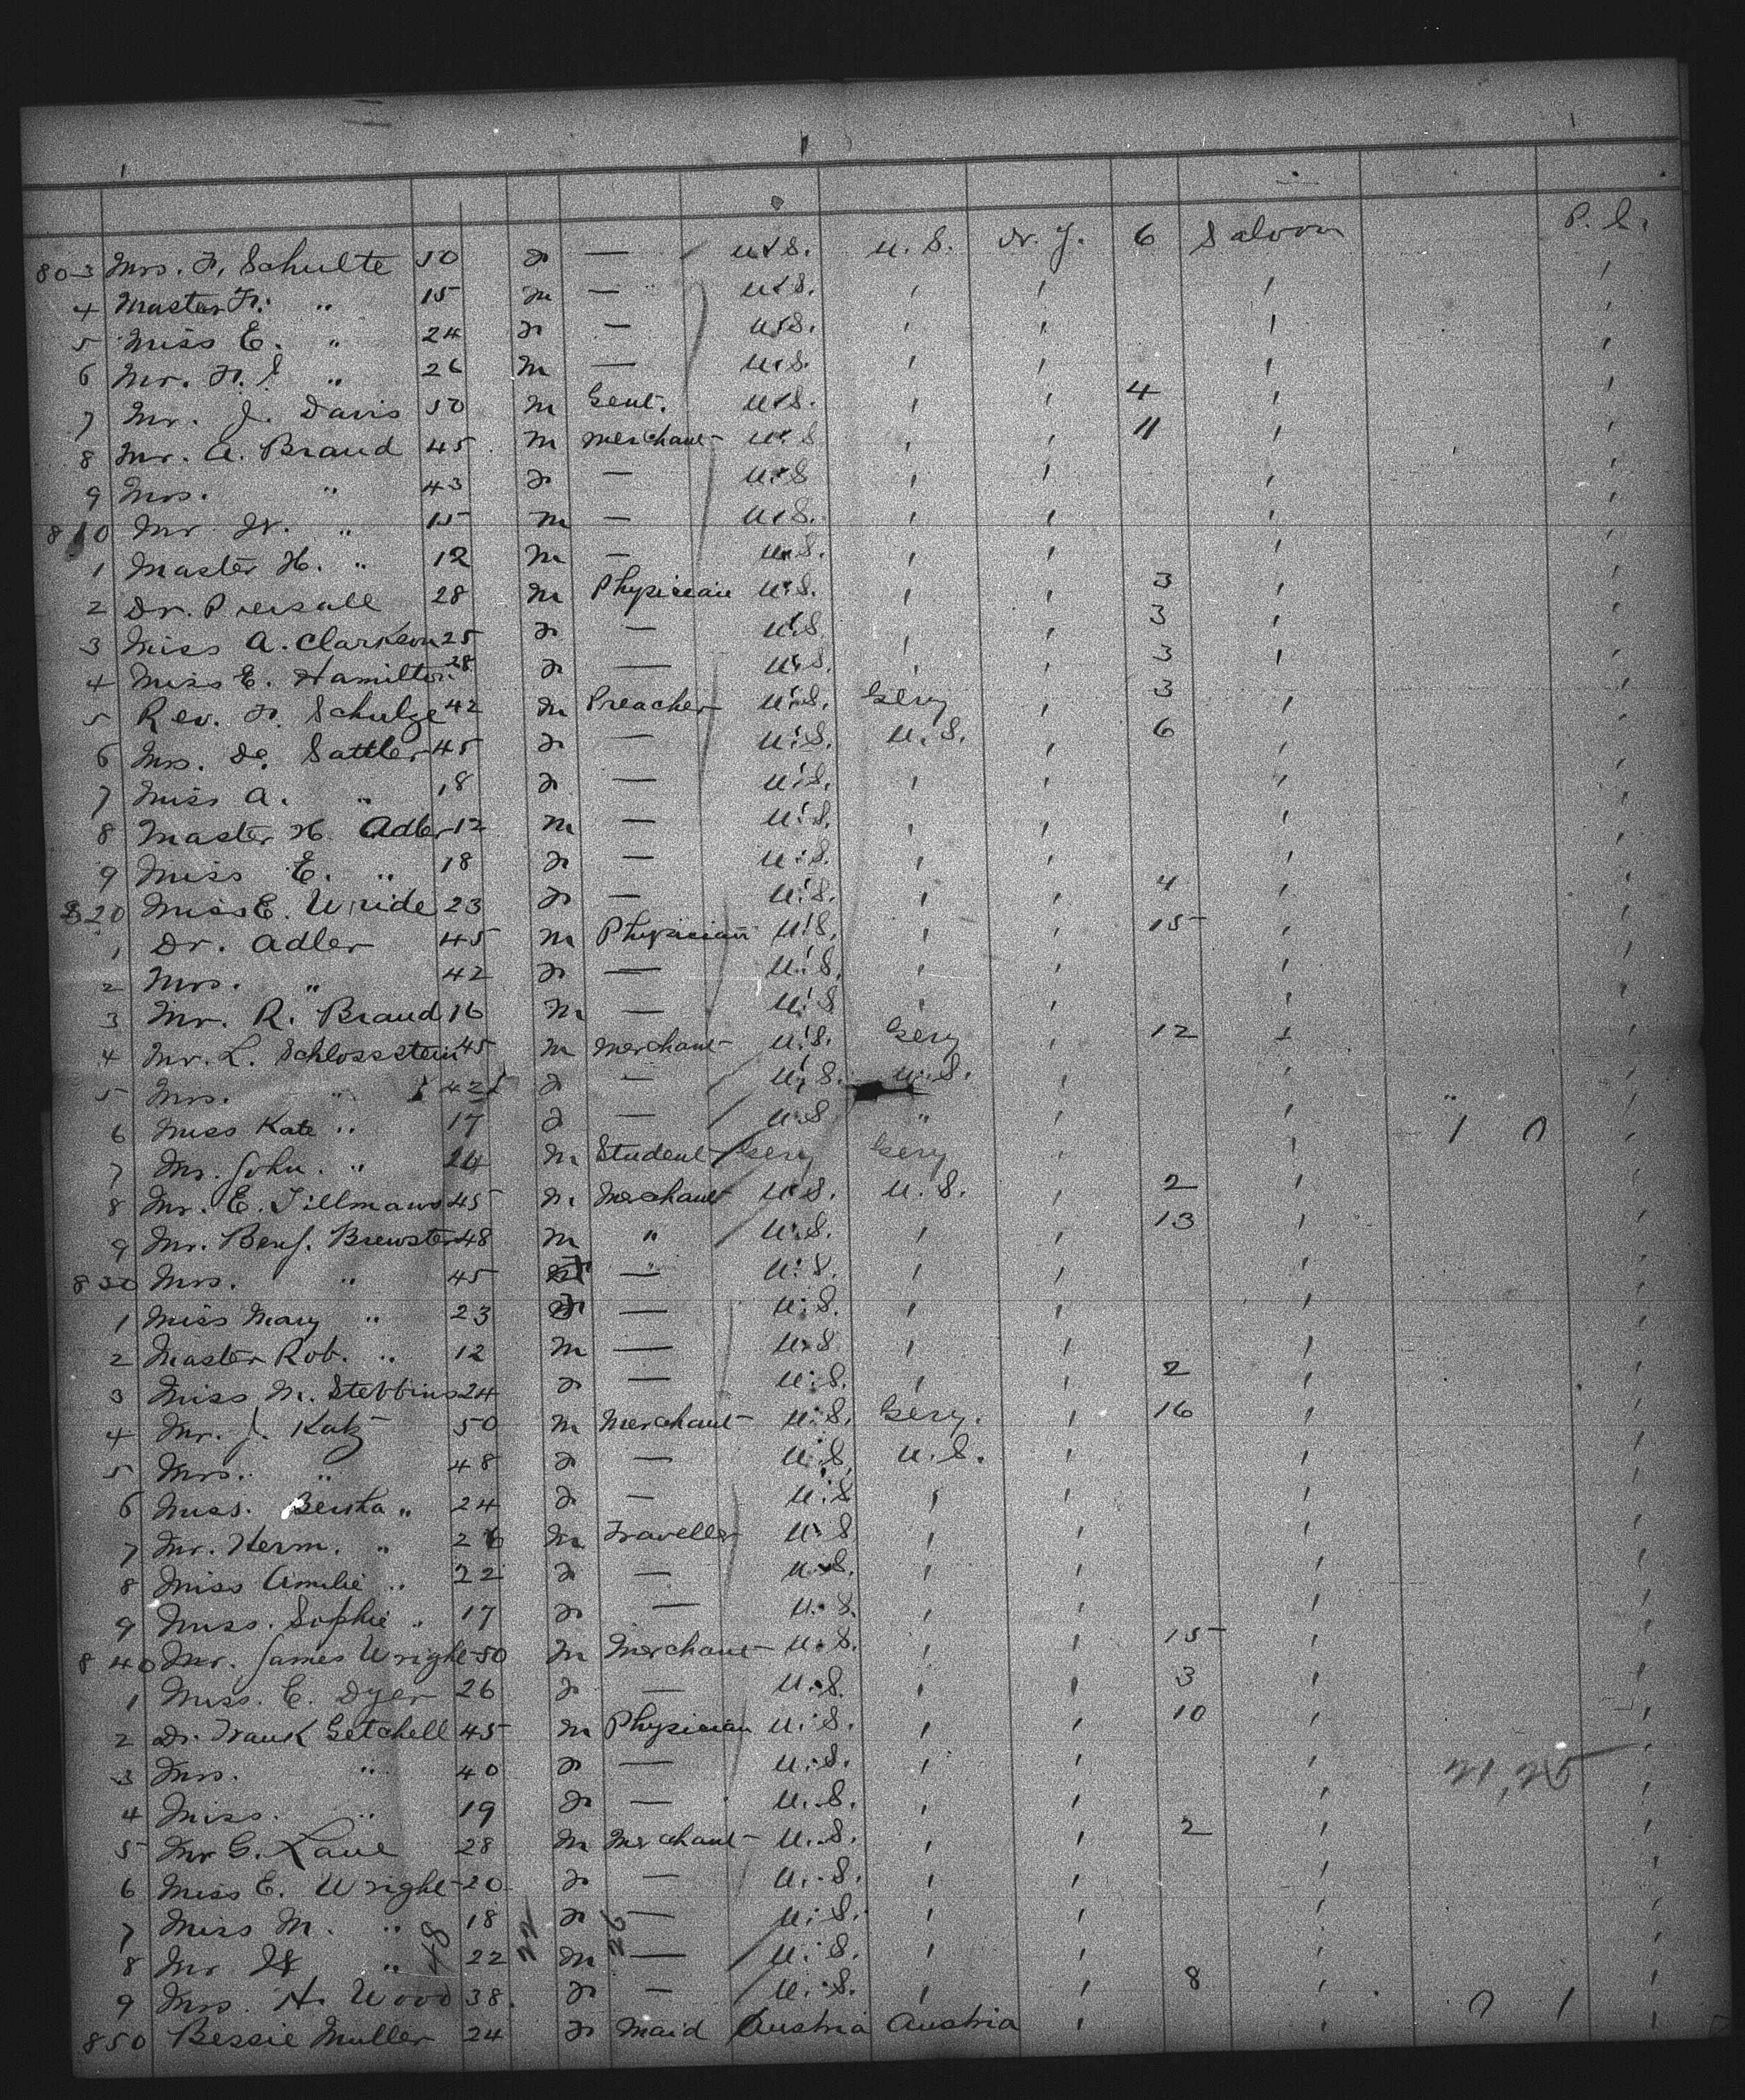 803 Mrs. F. Schulte 50 F — U.S. U.S. N.Y. 6 Saloon P.S.
4 Master Fr. " 15 m — U.S. ' ' ' '
5 Miss E. " 24 F — U.S. ' ' ' '
6 Mr. F. S " 26 m — U.S. ' ' ' '
7 Mr. J. Davis 50 m Gent. U.S. ' ' 4 ' '
8 Mr. A. Braud 45 m Merchant U.S ' ' 11 ' '
9 Mrs. " 43 F — U.S ' ' ' '
810 Mr W. " 15 m — U.S. ' ' ' '
1 Master H. " 12 m — U.S. ' ' ' '
2 Dr. Piersall 28 m Physician U.S. ' ' 3 ' '
3 Miss A. Clarkson 25 F — U.S. ' ' 3 ' '
4 Miss E. Hamilton 28 F — U.S. ' ' 3 ' '
5 Rev. F. Schulze 42 m Preacher U.S. Gery ' 3 ' '
6 Mrs. D. Sattler 45 F — U.S. U.S. ' 6 ' '
7 Miss A. " 18 F — U.S. ' ' ' '
8 Master H. Adler 12 m — U.S. ' ' ' '
9 Miss E. " 18 F — U.S. ' ' ' '
820 Miss E. Wride 23 F — U.S. ' ' 4 ' '
1 Dr. Adler 45 m Physician U.S. ' ' 15 ' '
2 Mrs. " 42 F — U.S. ' ' ' '
3 Mr. R. Braud 16 m — U.S ' ' ' '
4 Mr. L. Schlossstein 45 m Merchant U.S. Gery ' 12 ' '
5 Mrs. " 42 F — U.S. U.S. ' ' '
6 Miss Kate " 17 F — U.S " ' ' '
7 Mr. John. " 24 m Student Gery Gery ' ' '
8 Mr. E. Tillmans 45 m Merchant U.S. U.S. ' 2 ' '
9 Mr. Benj. Brewster 48 m " U.S. ' ' 13 ' '
830 Mrs. " 45 F — U.S. ' ' ' '
1 Miss Mary " 23 F — U.S. ' ' ' '
2 Master Rob. " 12 m — U.S. ' ' ' '
3 Miss M. Stebbins 24 F — U.S. ' ' 2 ' '
4 Mr. J. Katz 50 m Merchant U.S. Gery. ' 16 ' '
5 Mrs. " 48 F — U.S. U.S. ' ' '
6 Miss. Bertha " 24 F — U.S ' ' ' '
7 Mr. Herm. " 26 m Traveller U.S ' ' ' '
8 Miss Amelie " 22 F — U.S. ' ' ' '
9 Miss. Sophie " 17 F — U.S. ' ' ' '
840 Mr. James Wright 50 m Merchant U.S. ' ' 15 ' '
1 Miss. C. Dyer 26 F — U.S. ' ' 3 ' '
2 Dr. Frank Getchell 45 m Physician U.S. ' ' 10 ' '
3 Mrs. " 40 F — U.S. ' ' ' '
4 Miss. " 19 F — U.S. ' ' ' '
5 Mr G. Lane 28 m Merchant U.S. ' ' 2 ' '
6 Miss E. Wright 20 F — U.S. ' ' ' '
7 Miss M. " 18 F — U.S. ' ' ' '
8 Mr W " 22 m — U.S. ' ' ' '
9 Mrs. H. Wood 38. F — U.S. ' ' 8 ' '
850 Bessie Muller 24 F Maid Austria Austria ' ' '
48 22 26